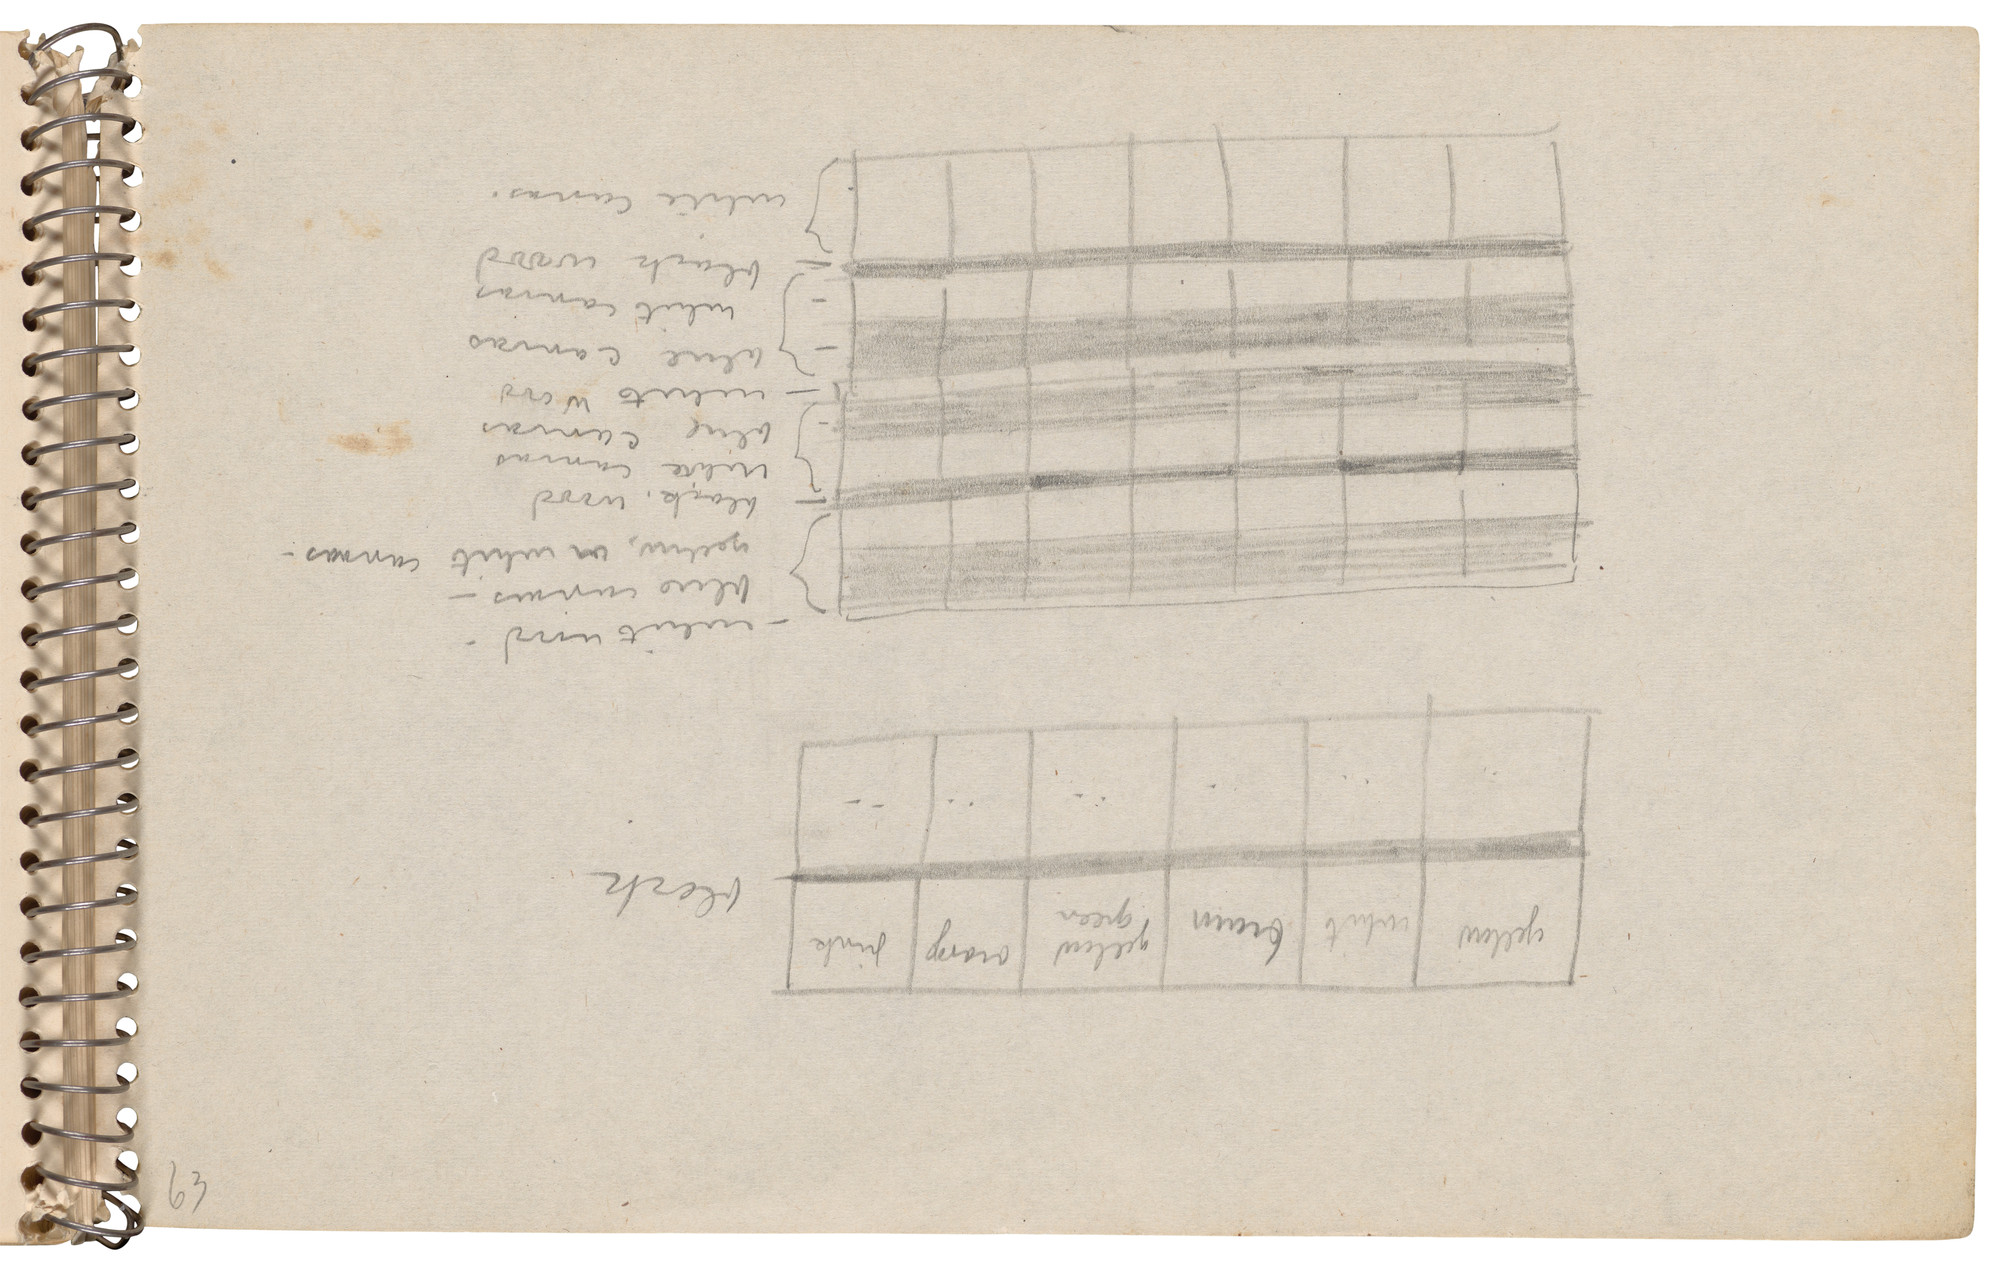 yellow
white
brown
yellow
green
orange
pink
black
white wood -
blue canvas -
yellow, on white canvas -
black wood
white canvas
blue canvas
white wood
blue canvas
white canvas
black wood
white canvas.
63